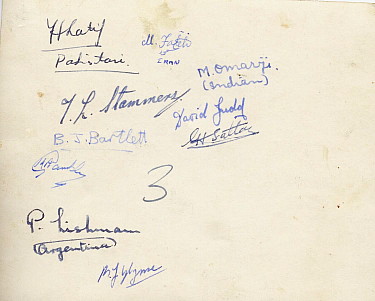 Khatif
Pakistan.
M. Fateh
IRAN
M. Omarji.
(Indian)
T. L. Stammers
David Judd
B. J. Bartlett
3
P. Lishmann
(Argentina)